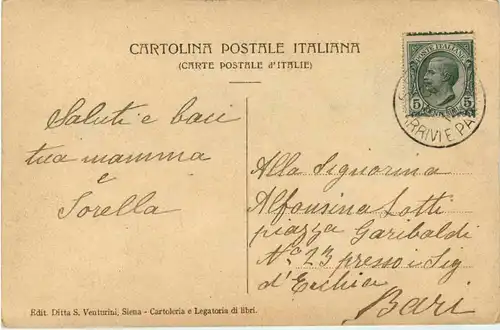 CARTOLINA POSTALE ITALIANA
(CARTE POSTALE d'ITALIE)
POSTE ITALIANE
5 5
ARRIVI E PA
Saluti e baci
tua mamma
e
Sorella
Alla Signorina
Alfonsina Lotti
piazza Garibaldi
N.o 23 presso i Sig
Bari
Edit. Ditta S. Venturini, Siena - Cartoleria e Legatoria di libri.